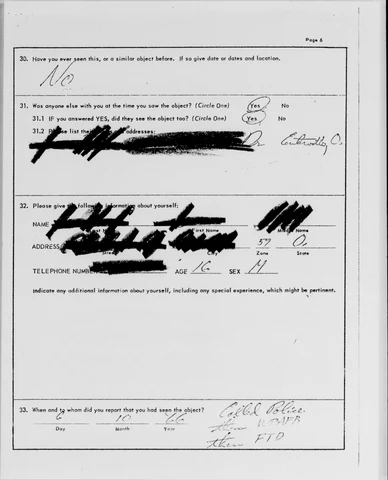 Page 6
30. Have you ever seen this, or a similar object before. If so give date or dates and location.
No
31. Was anyone else with you at the time you saw the object? (Circle One) Yes No
31.1 IF you answered YES, did they see the object too? (Circle One) Yes No
31.2 Please list their addresses:
Dr. O.
32. Please give the following information about yourself:
NAME
First Name Middle Name
ADDRESS 57 O.
Street City Zone State
TELEPHONE NUMBER AGE 16 SEX M
Indicate any additional information about yourself, including any special experience, which might be pertinent.
33. When and to whom did you report that you had seen the object?
Called Police
6 10 66 then
Day Month Year then FTD